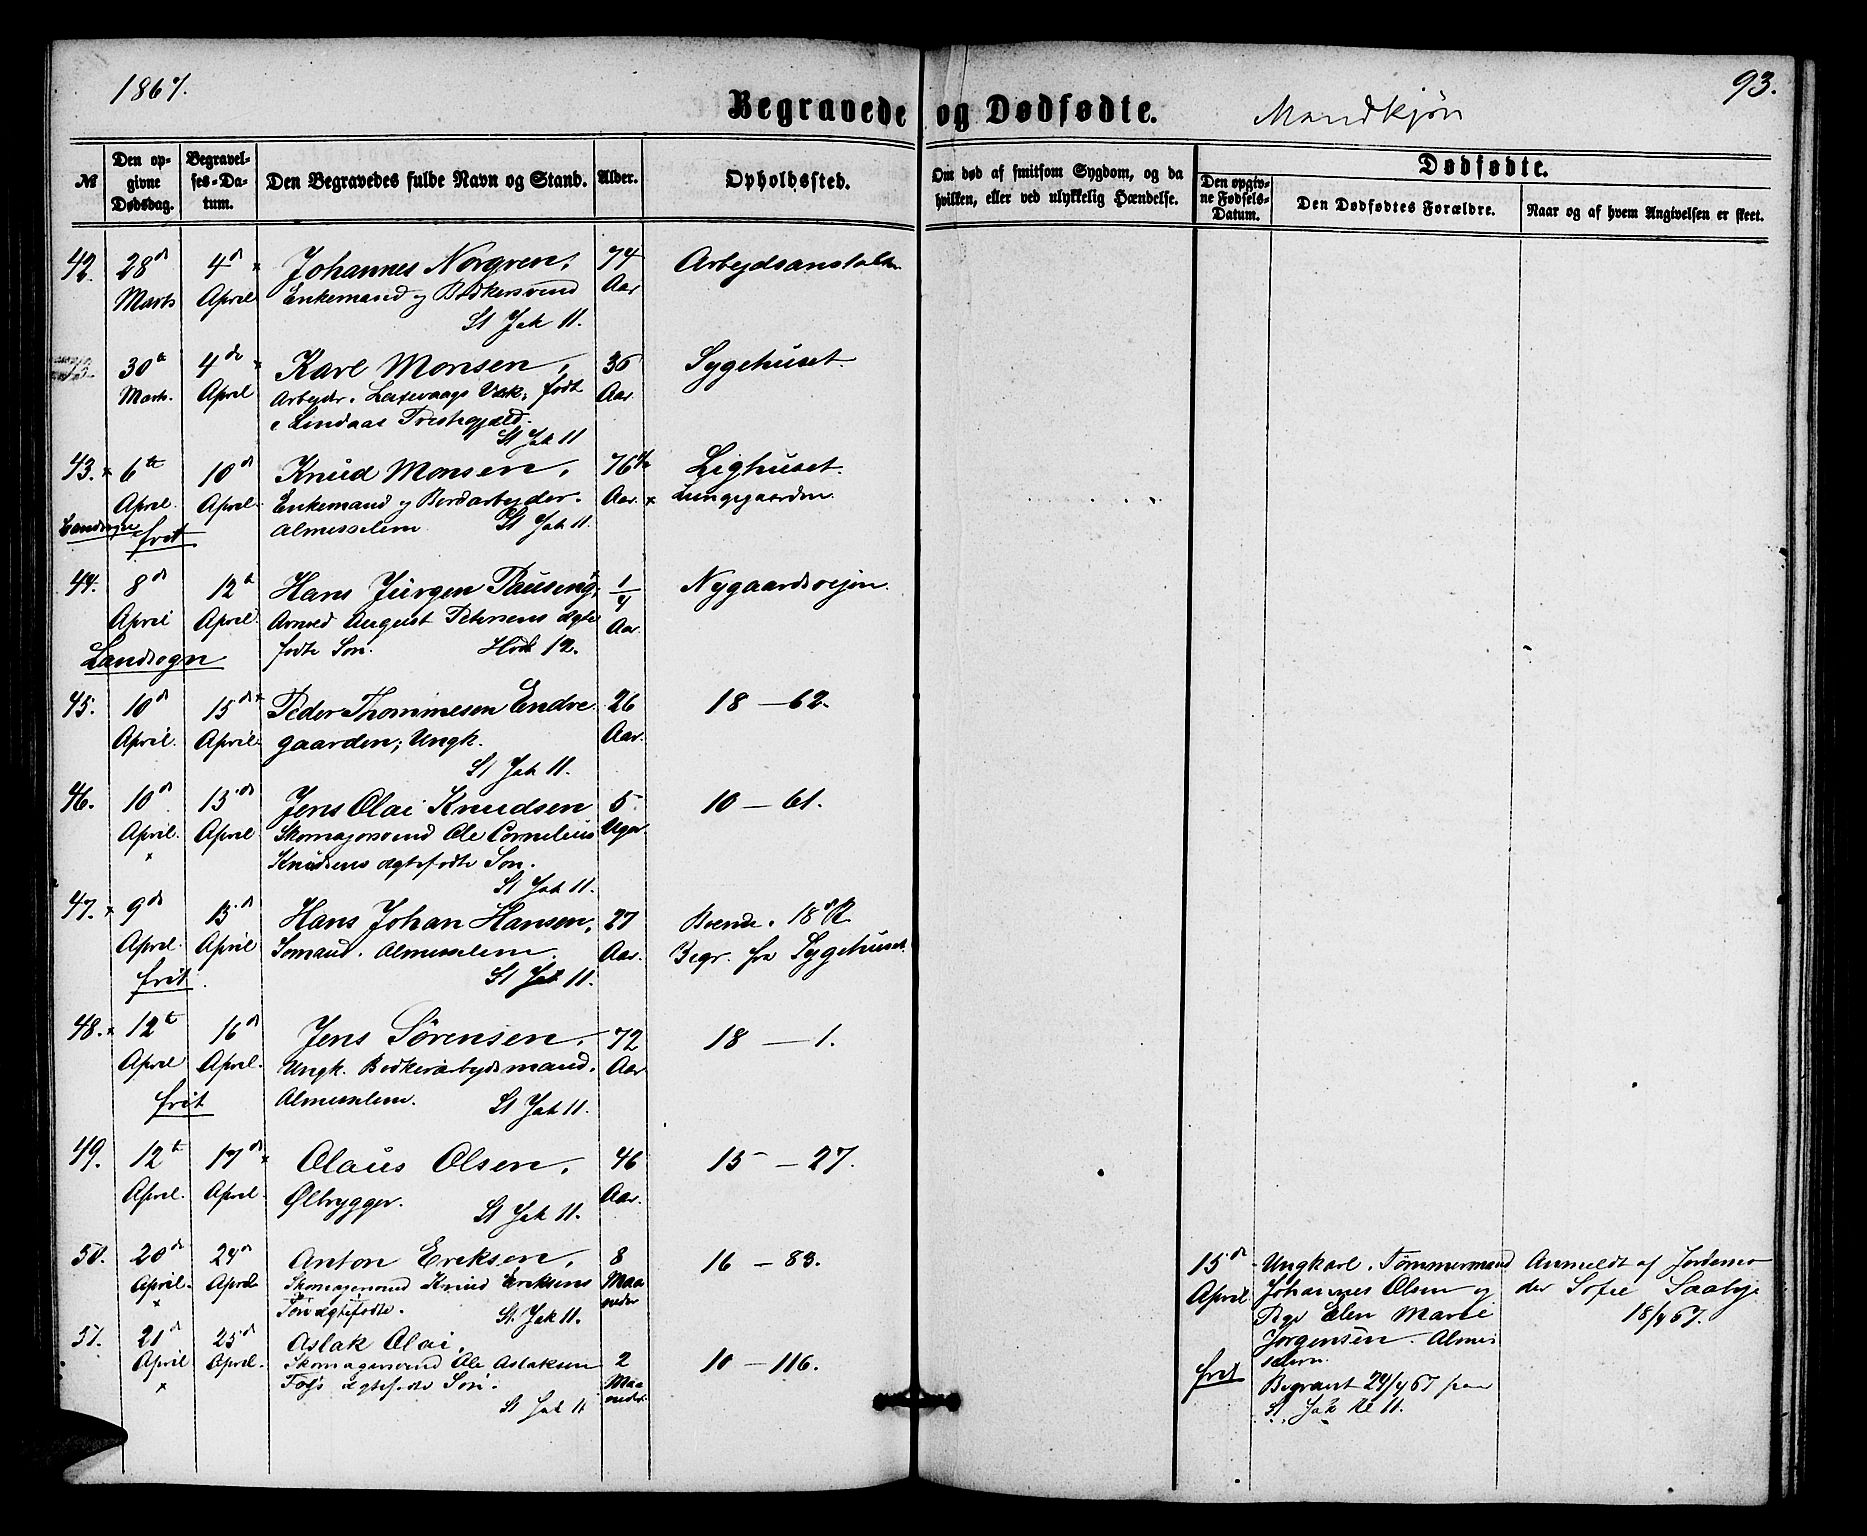 1867.
93.
Begravede og Dødfødte.
Mandkjön
№
Den op-
givne
Dødsdag.
Begravel-
ses-Da-
tum.
Den Begravedes fulde Navn og Stand.
Alder.
Opholdssted.
Om død af smitsom Sygdom, og da
hvilken, eller ved ulykkelig Hændelse.
Dødfødte.
Den opgiv-
ne Fødsels-
Datum.
Den Dødfødtes Forældre.
Naar og af hvem Angivelsen er skeet.
42. 28d 4d Johannes Norgren, 74 Arbejdsanstalten
Marts April Enkemand og Bödkersvend Aar
St Jak 11.
30te 4de Karl Monsen, 36 Sygehuset.
Marts. April Arbejder. Laxevaags Værk, født Aar.
i Lindaas Præstegjæld.
St Jak 11
43. 6te 10d Knud Monsen, 76 Lighuset.
April. April. Enkemand og Bordarbejder. Aar. Lungegaarden.
Landsogn frit Almisselem St Jak 11.
44. 8de 12te Hans Jürgen 1/4 Nygaardsvejen.
April April. August Petersens ægte Aar.
Landsogn fødte Søn. 12.
45. 10d 15de Peder Thommesen Endre 26 18 — 62.
April. April. gaarden; Ungk. Aar.
St Jak 11.
46. 10d 15de Jens Olai Knudsen 5 10 — 61.
April. April Skomagersvend Ole Cornelius Uger.
Knudsens ægtefødte Søn.
St Jak 11.
47. 9de 15d Hans Johan Hansen, 27 Boende i 18d R
April. April Sömand. Almisselem. Aar. Begr. fra Sygehuset.
frit. St Jak 11.
48. 12te 16d Jens Sørensen. 72 18 — 1.
April April. Ungk. Bödkerarbejdsmand. Aar
frit Almisselem. St Jak 11.
49. 12te 17de Olaus Olsen, 46 15 — 27.
April. April. Ølbrygger. Aar.
St Jak 11.
50. 20de 24d Anton Eriksen, 8 16 — 83.
April. April Skomagersvend Knud Eriksens Maa
Søn ægtefødte. St. Jak 11. neder
51. 21d 25d Aslak Olai,
April April. Skomagersvend Ole Aslaksen 2 10 — 116.
ægtefødte Søn. Maa
St Jak 11 neder.
15d Ungkarl, Tømmermand Anmeldt af Jordemo
April Johannes Olsen og der Sofie Saabye
Pige Elen Marie 18/4 67.
Jørgensen. Almis
selem.
frit Begravet 24/4 67 paa
St. Jak 11.